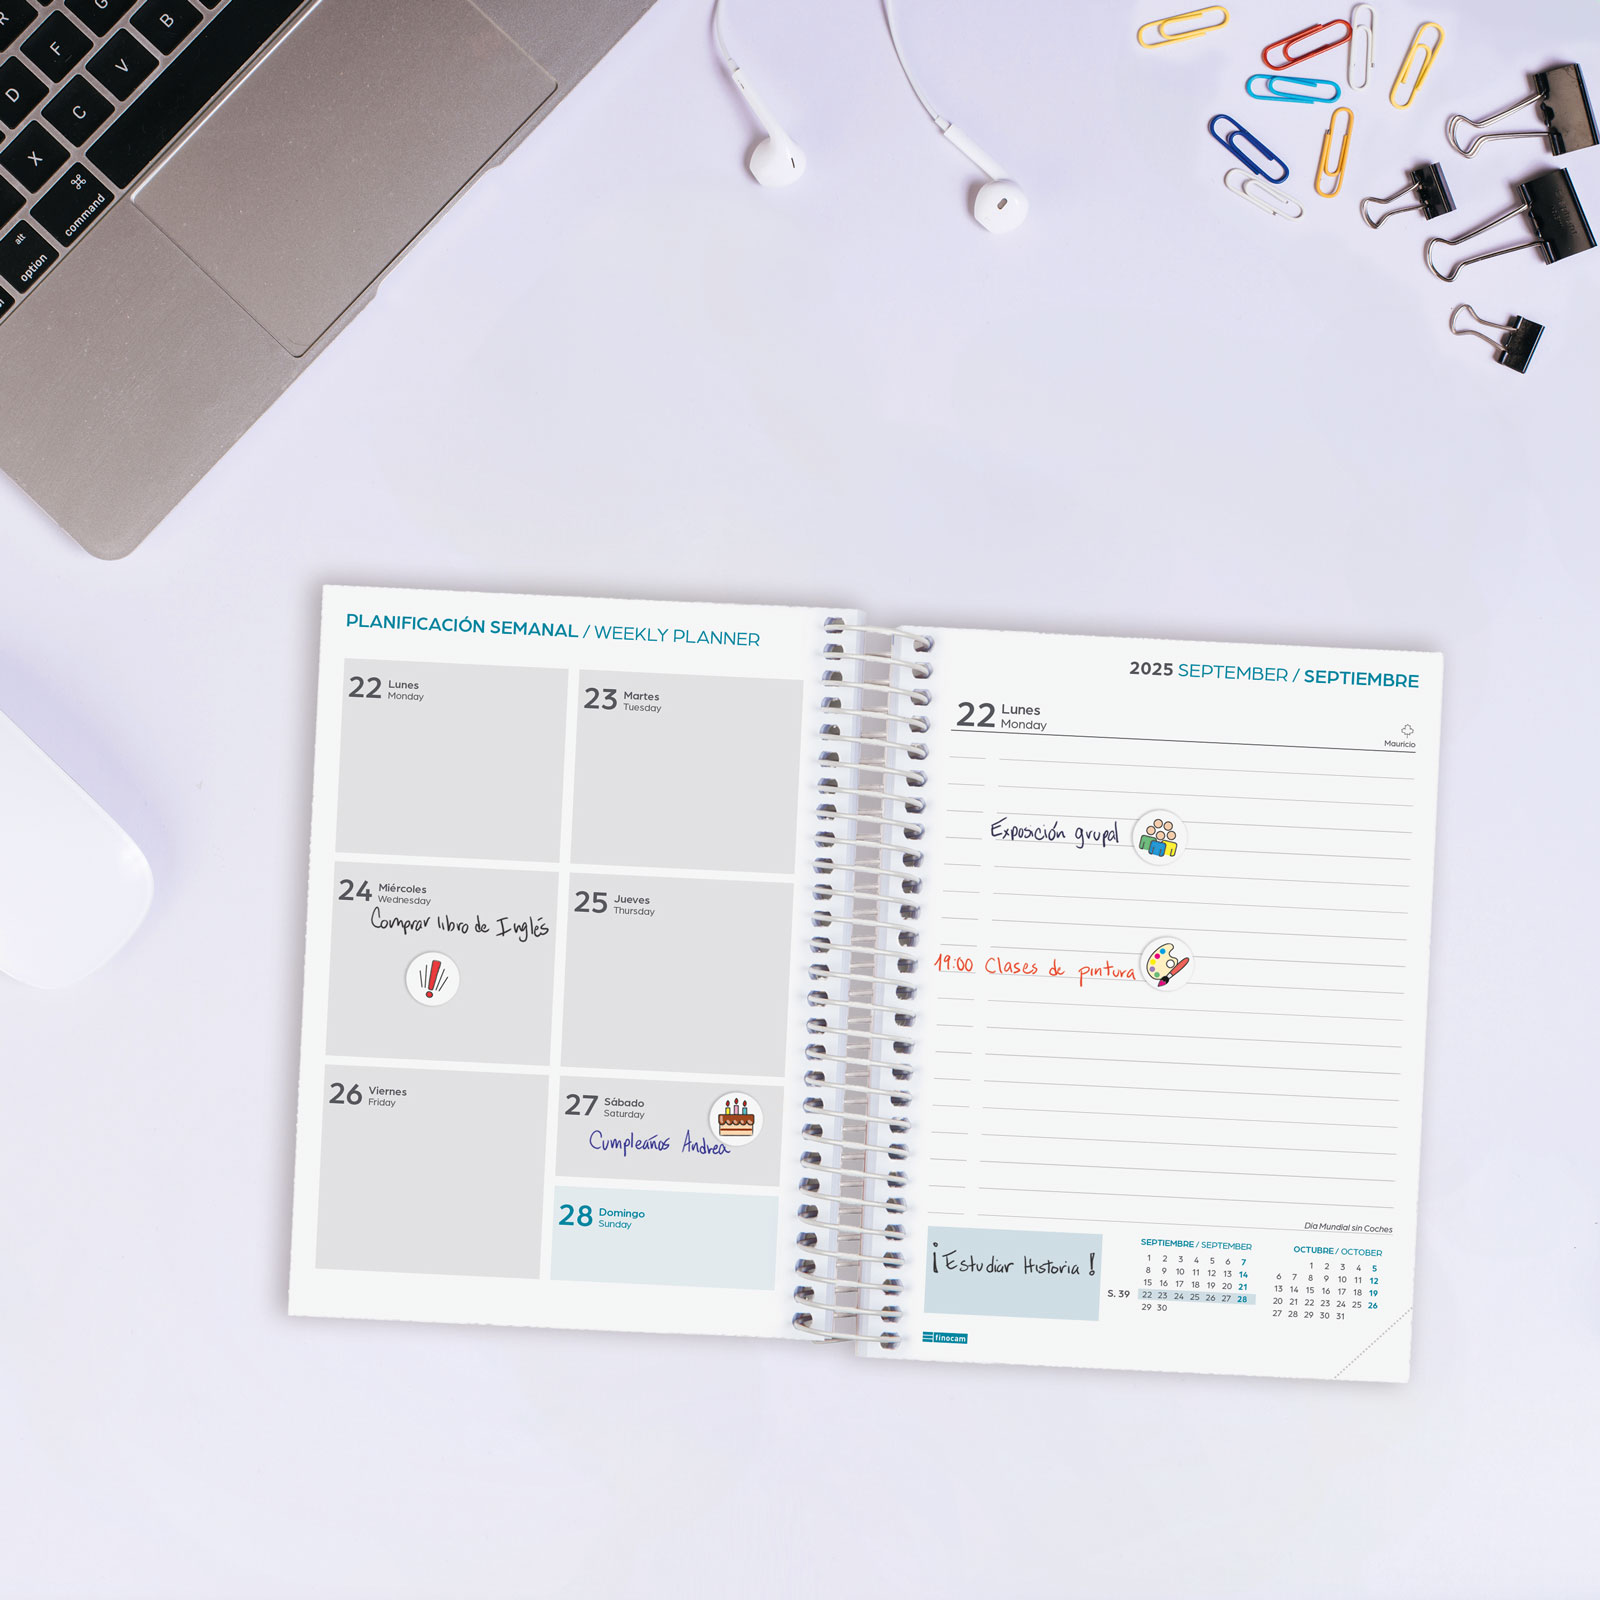 R
F
G
B
D
C
V
X
⌘
command
alt
option
PLANIFICACIÓN SEMANAL / WEEKLY PLANNER
22 Lunes
Monday
23 Martes
Tuesday
24 Miércoles
Wednesday
Comprar libro de Inglés
25 Jueves
Thursday
26 Viernes
Friday
27 Sábado
Saturday
Cumpleaños Andrea
28 Domingo
Sunday
2025 SEPTEMBER / SEPTIEMBRE
22 Lunes
Monday
Mauricio
Exposición grupal
19:00 Clases de pintura
Día Mundial sin Coches
¡Estudiar Historia!
SEPTIEMBRE / SEPTEMBER
1 2 3 4 5 6 7
8 9 10 11 12 13 14
15 16 17 18 19 20 21
S. 39 22 23 24 25 26 27 28
29 30
OCTUBRE / OCTOBER
1 2 3 4 5
6 7 8 9 10 11 12
13 14 15 16 17 18 19
20 21 22 23 24 25 26
27 28 29 30 31
finocam